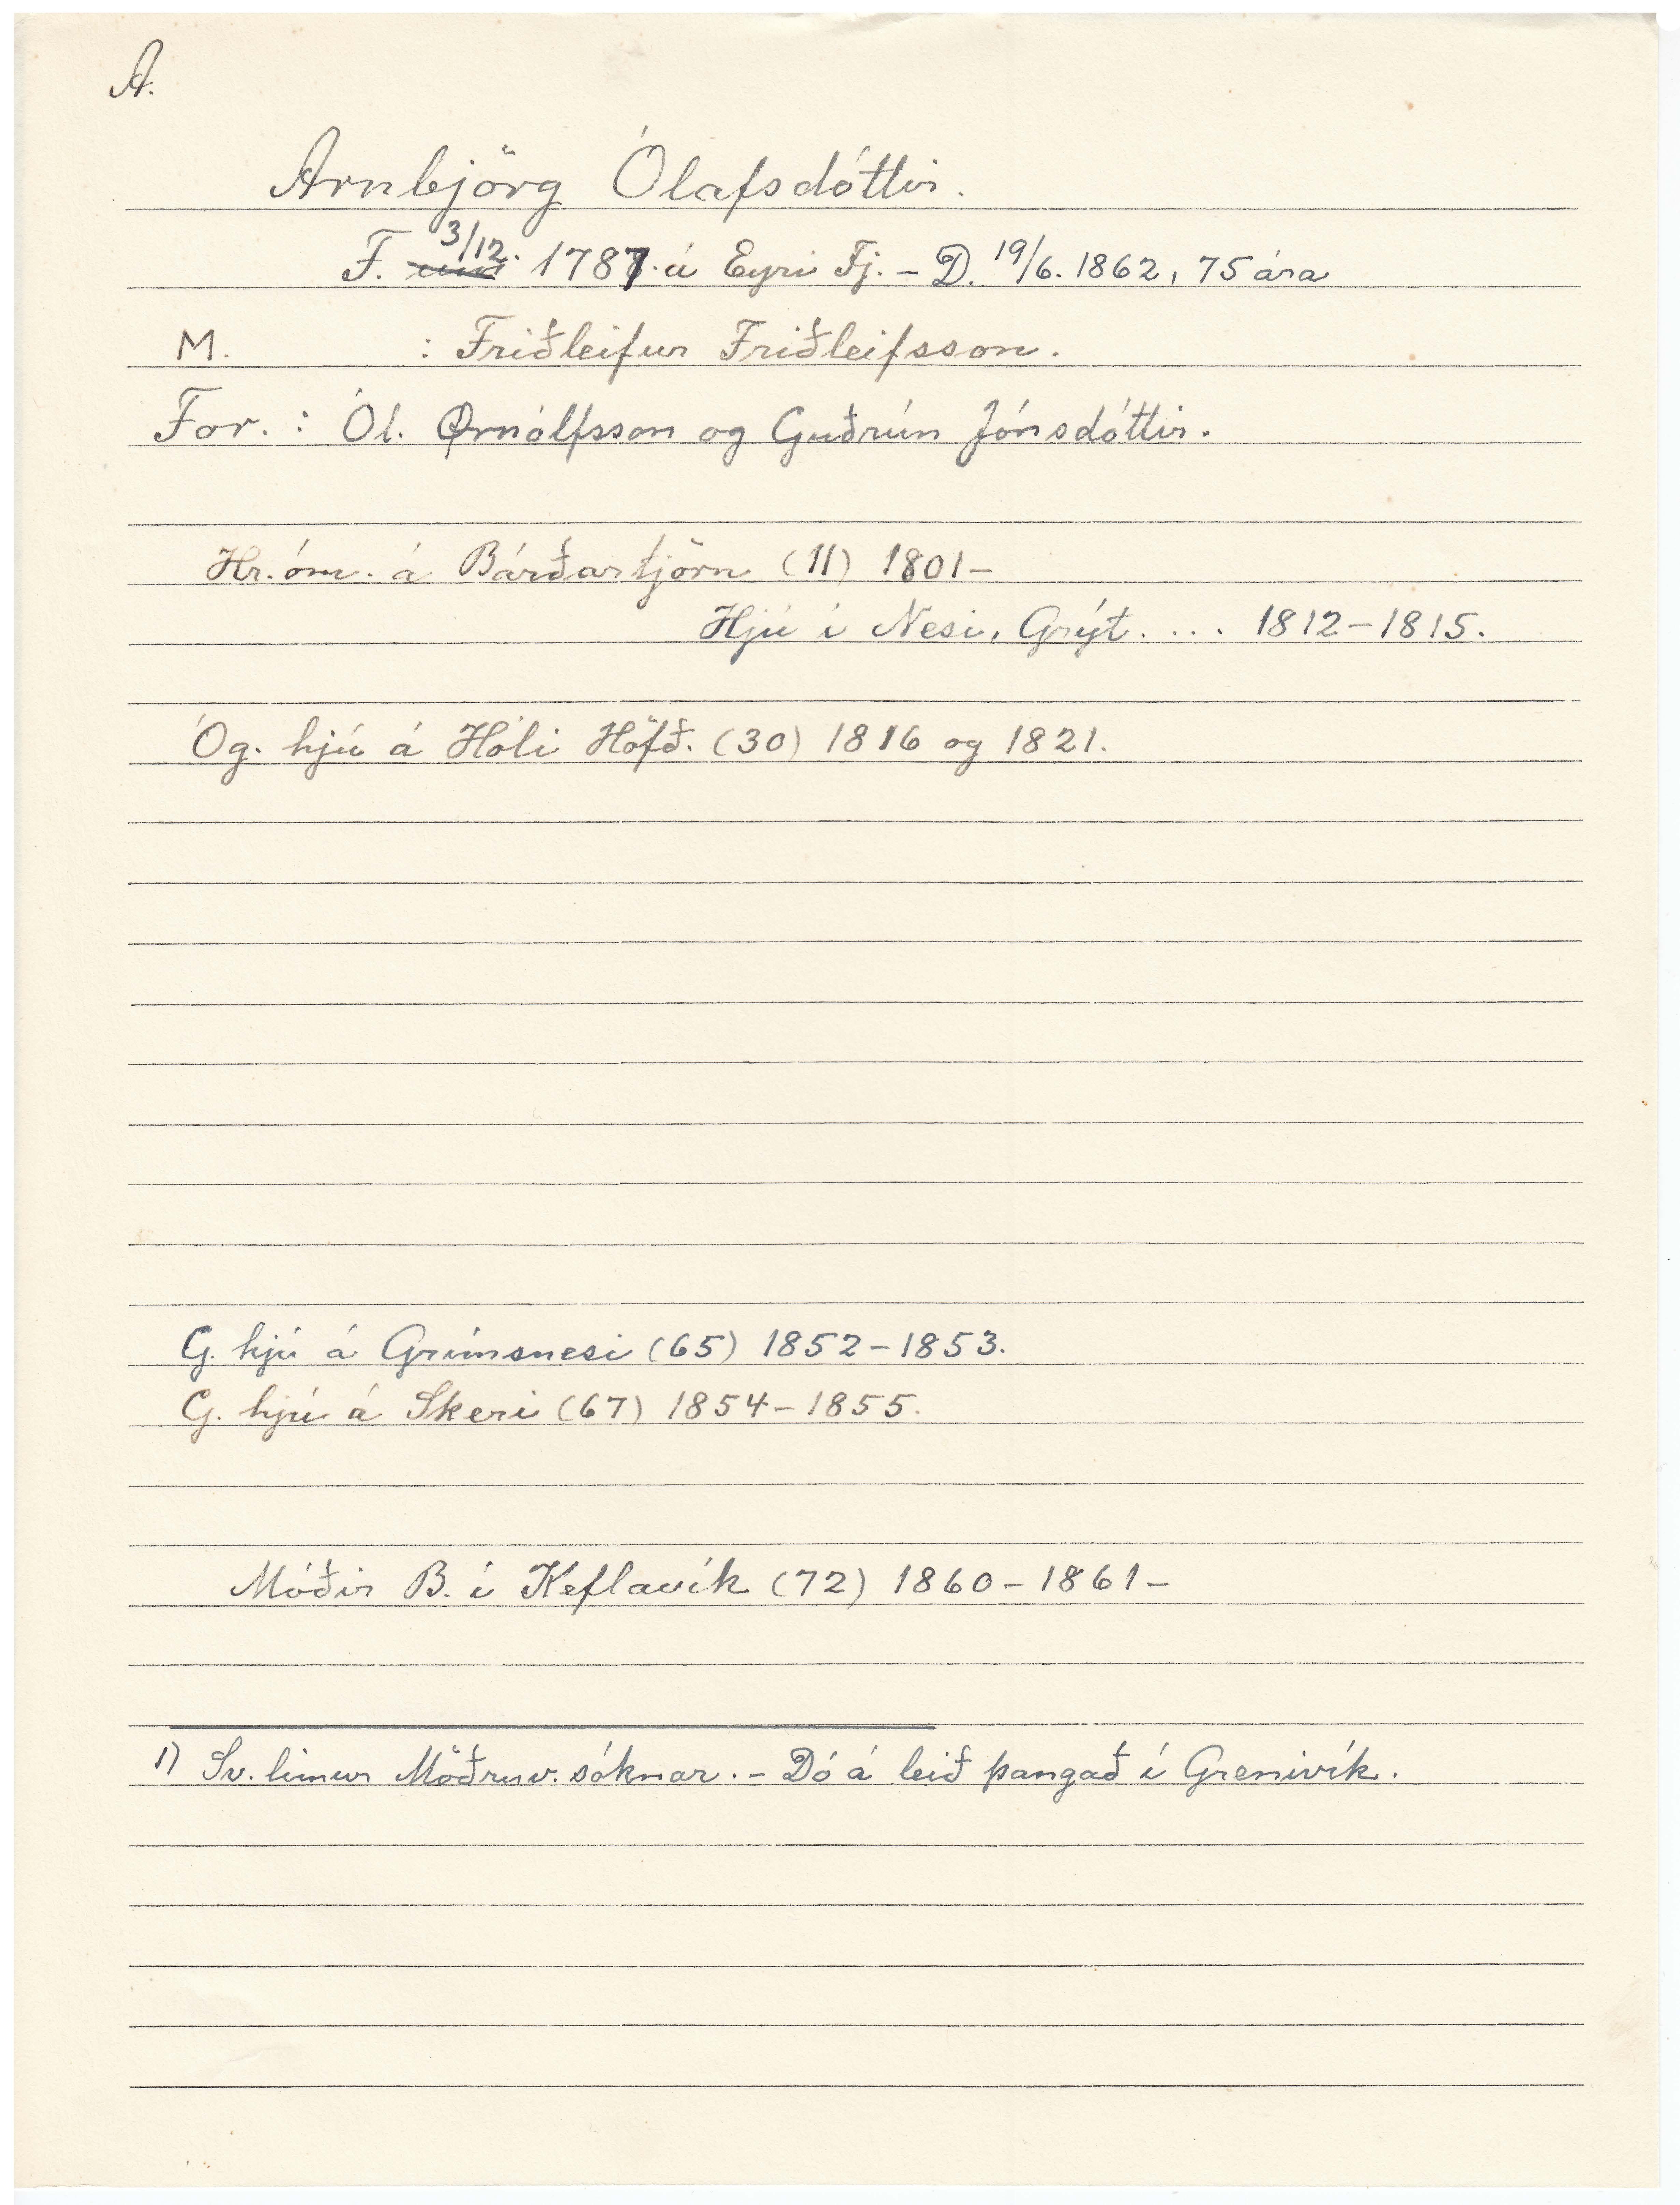 A.
Arnbjörg Ólafsdóttir.
F. 3/12. 1787. á Eyri Fj. – D. 19/6. 1862, 75 ára
M. : Friðleifur Friðleifsson.
For. : Ól. Ørnólfsson og Guðrún Jónsdóttir.
Hr.óm. á Bárðartjörn (11) 1801–
Hjú í Nesi, Grýt. ... 1812–1815.
Óg. hjú á Hóli Höfð. (30) 1816 og 1821.
G. hjú á Grímsnesi (65) 1852–1853.
G. hjú á Skeri (67) 1854–1855.
Móðir B. í Keflavík (72) 1860–1861–
1) Sv. limur Möðruv. sóknar. – Dó á leið þangað í Grenivík.